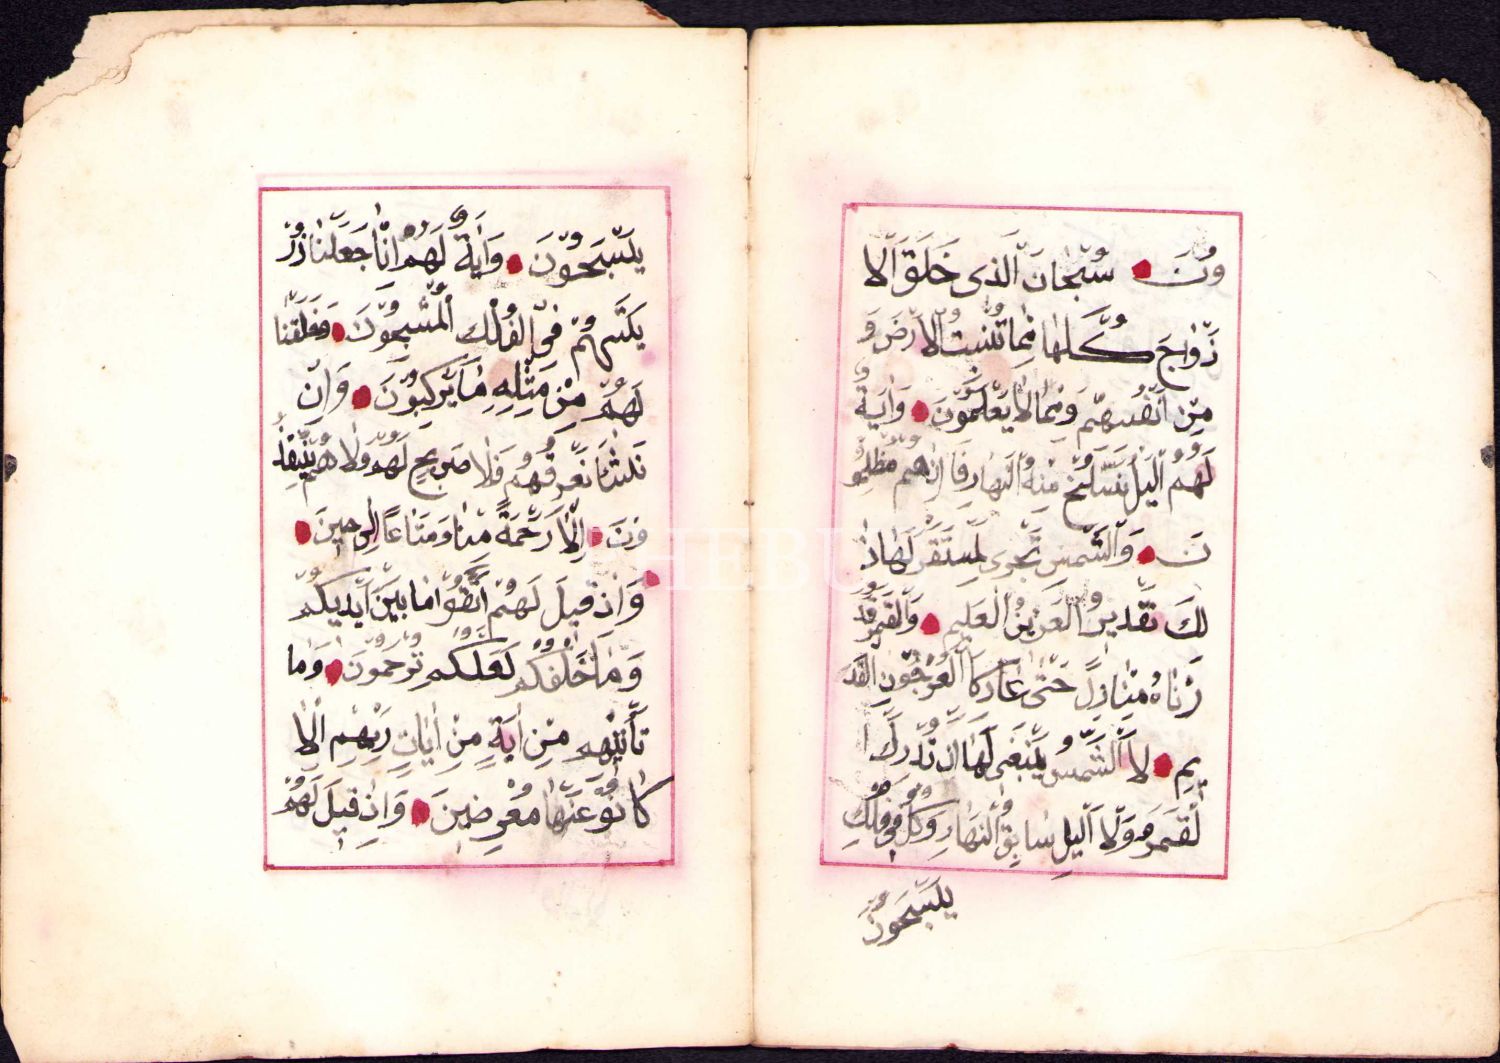 ونَ سُبْحَانَ الَّذى خَلَقَ الْا
زْوٰاجَ كُلَّهٰا مِمّٰا تُنْبِتُ الْاَرْضُ وَ
مِنْ اَنْفُسِهِمْ وَمِمّٰا لٰا يَعْلَمُونَ وَاٰيَةٌ
لَهُمُ الَّيْلُ نَسْلَخُ مِنْهُ النَّهَارَ فَاِذٰاهُمْ مُظْلِمُو
نَ وَالشَّمْسُ تَجْرى لِمُسْتَقَرٍّ لَهٰا ذٰ
لِكَ تَقْديرُ الْعَزيزِ الْعَليمِ وَالْقَمَرَ قَدَّ
رْنٰاهُ مَنٰازِلَ حَتّٰى عٰادَ كَا الْعُرْجُونِ الْقَد
يمِ لَا الشَّمْسُ يَنْبَغى لَهٰا اَنْ تُدْرِكَ ا
لْقَمَرَ وَلَا الَّيْلُ سٰابِقُ النَّهٰارِ وَكُلٌّ فى فَلَكٍ
يَسْبَحُونَ
يَسْبَحُونَ وَاٰيَةٌ لَهُمْ اَنّٰا جَعَلْنٰا ذُرِّ
يَتَهُمْ فِى الْفُلْكِ الْمَشْحُونِ وَخَلَقْنٰا
لَهُمْ مِنْ مِثْلِهِ مٰا يَرْكَبُونَ وَاِنْ
نَشَأْ نُغْرِقْهُمْ فَلٰا صَريخَ لَهُمْ وَلٰا هُمْ يُنْقَذُ
ونَ اِلّٰا رَحْمَةً مِنّٰا وَمَتٰاعًا اِلٰى حينٍ
وَاِذٰ قيلَ لَهُمُ اتَّقُوا مٰا بَيْنَ اَيْديكُمْ
وَمٰا خَلْفَكُمْ لَعَلَّكُمْ تُرْحَمُونَ وَمٰا
تَأْتيهِمْ مِنْ اٰيَةٍ مِنْ اٰيٰاتِ رَبِّهِمْ اِلّٰا
كٰانُوا عَنْهٰا مُعْرِضينَ وَاِذٰ قيلَ لَهُمْ